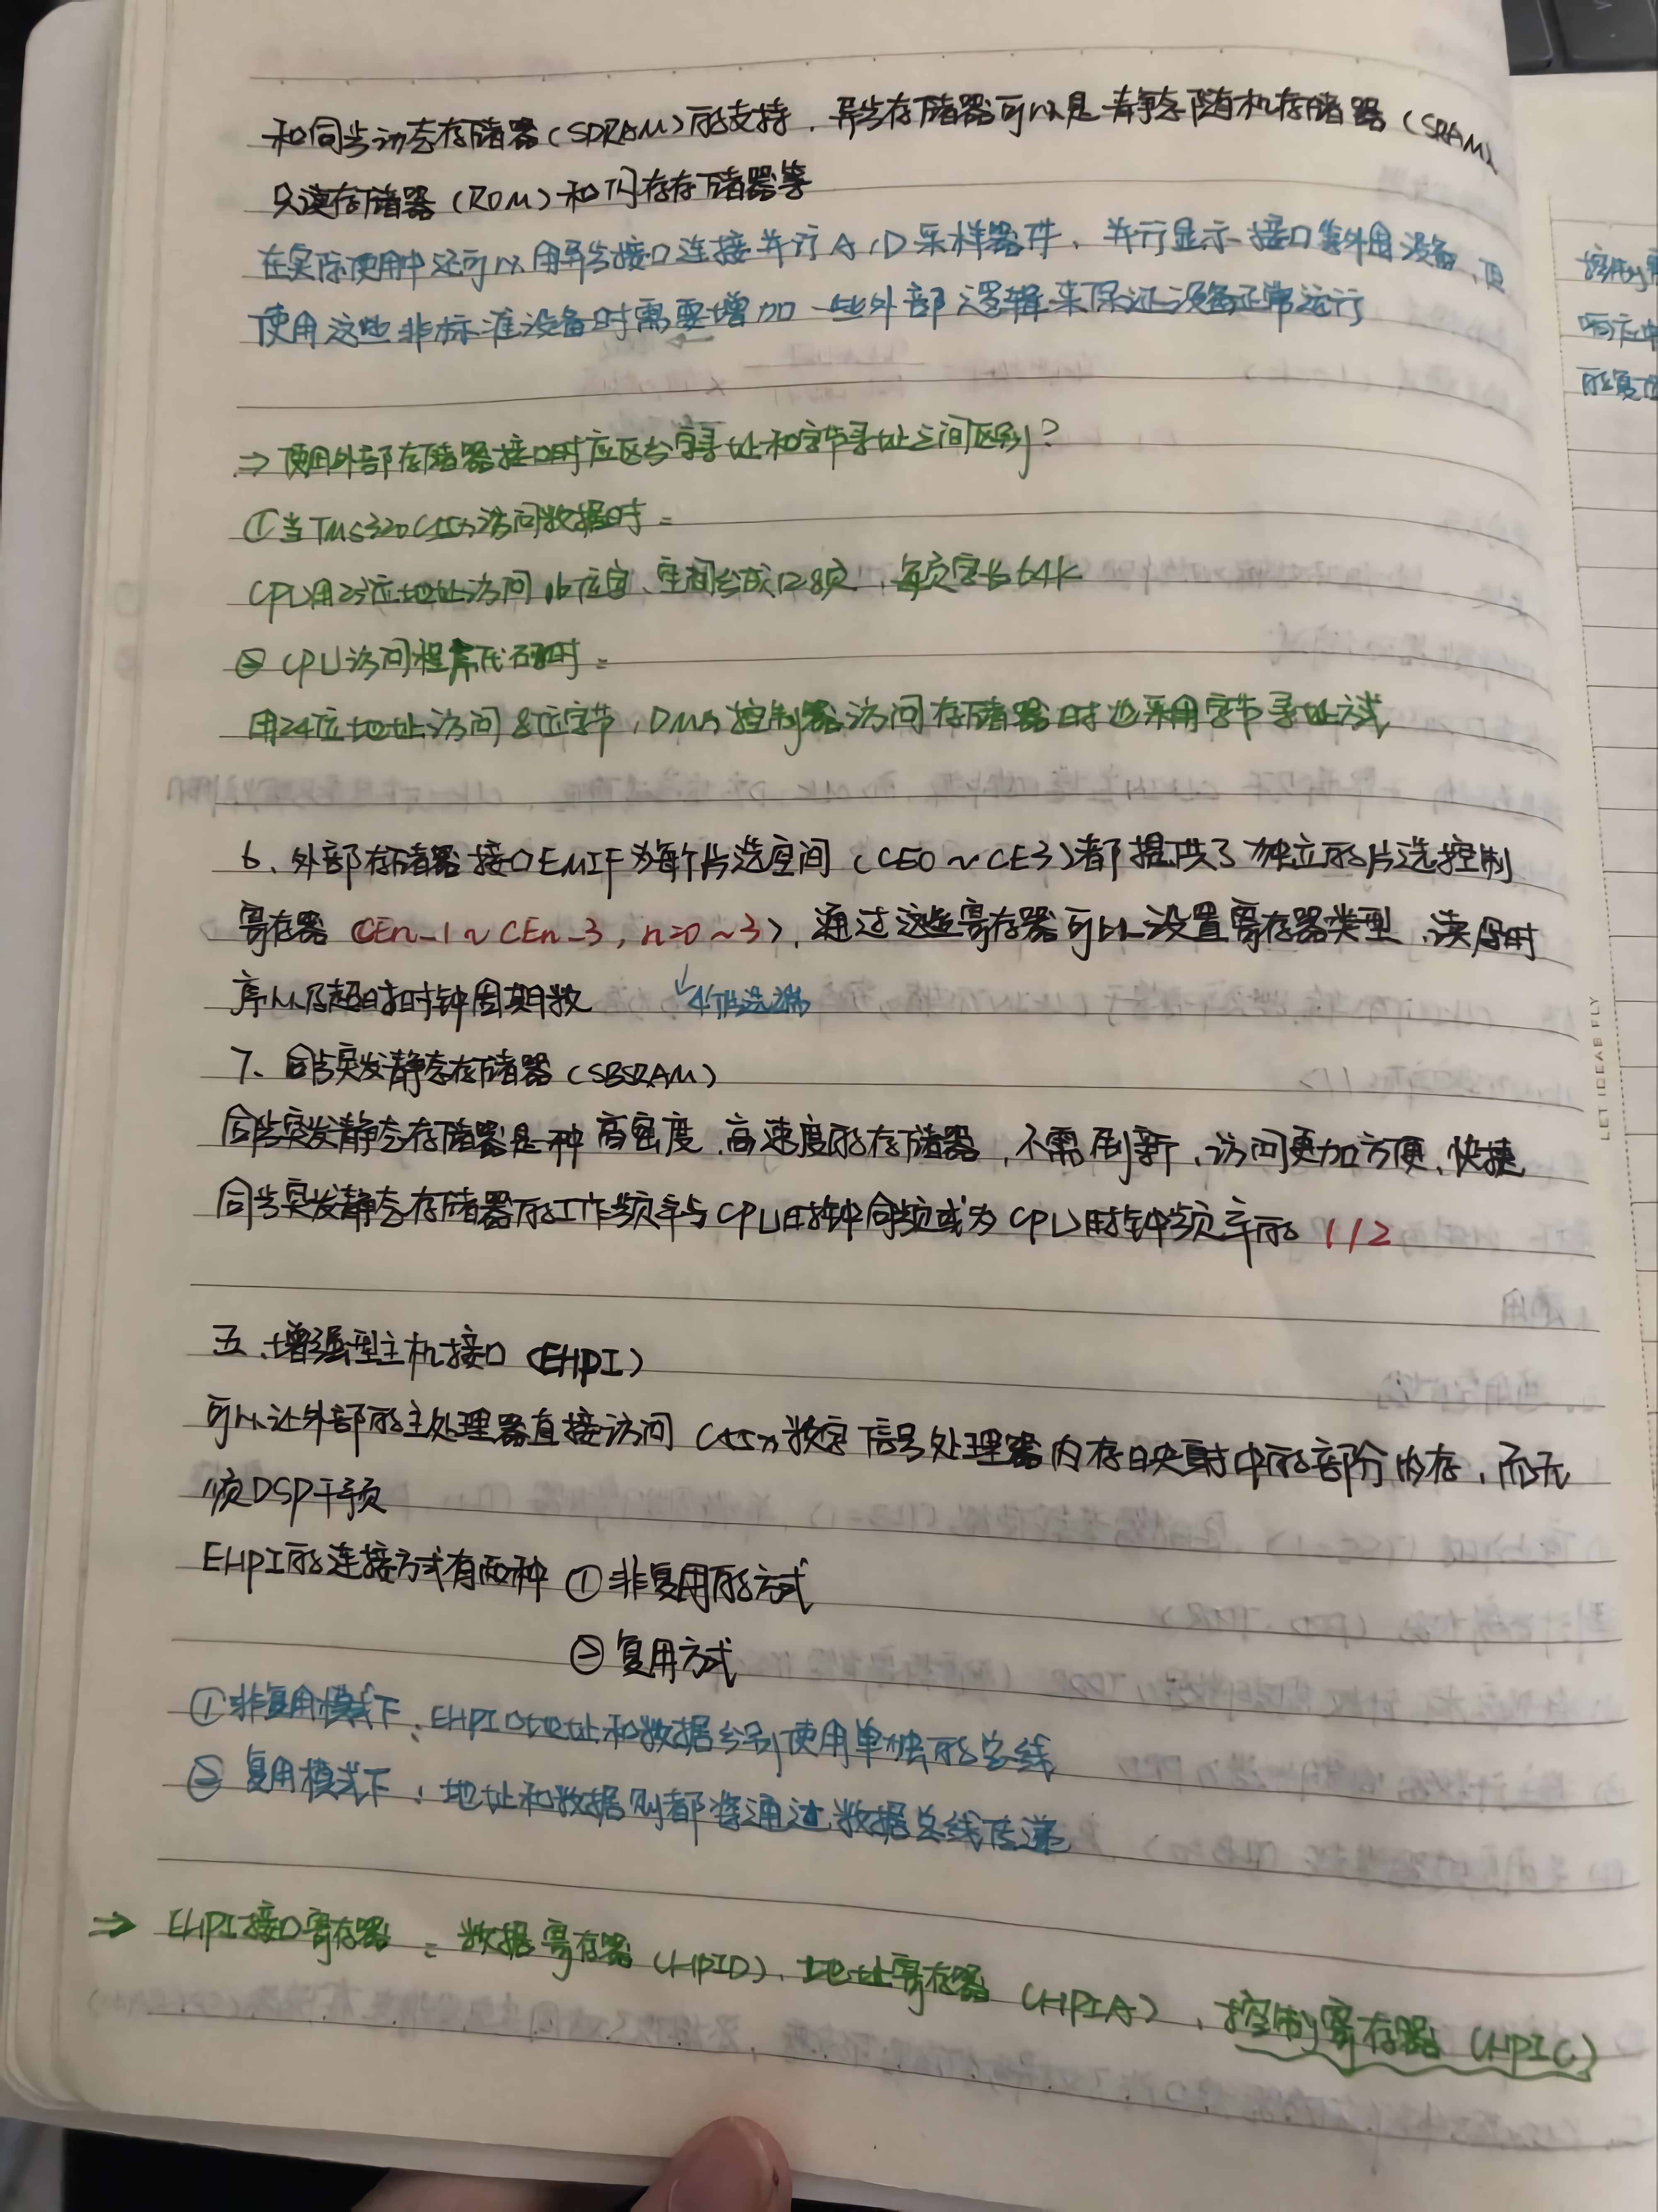 和同步动态存储器(SDRAM)的支持，异步存储器可以是静态随机存储器(SRAM)、
只读存储器(ROM)和闪存存储器等
在实际使用中还可以用异步接口连接并行A/D采样器件、并行显示接口等外围设备，但
使用这些非标准设备时需要增加一些外部逻辑来保证设备正常运行
⇒ 使用外部存储器接口时应区分字寻址和字节寻址之间区别？
①当TMS320C55x访问数据时：
CPU用23位地址访问16位字、空间分成128页，每页字长64K
② CPU访问程序代码时：
用24位地址访问8位字节，DMA控制器访问存储器时也采用字节寻址方式
6、外部存储器接口EMIF为每个片选空间(CE0～CE3)都提供了独立的片选控制
寄存器(CEn-1～CEn-3, n=0～3)，通过这些寄存器可以设置寄存器类型、读写时
序以及超时时钟周期数
↓4个片选端
7、同步突发静态存储器(SBSRAM)
同步突发静态存储器是一种高密度、高速度的存储器，不需刷新、访问更加方便、快捷
同步突发静态存储器的工作频率与CPU时钟同频或为CPU时钟频率的1/2
五、增强型主机接口(EHPI)
可以让外部的主处理器直接访问C55x数字信号处理器内存映射中的部分内存，而无
须DSP干预
EHPI的连接方式有两种 ①非复用的方式
② 复用方式
①非复用模式下：EHPI口地址和数据分别使用单独的总线
② 复用模式下：地址和数据则都将通过数据总线传递
⇒ EHPI接口寄存器：数据寄存器(HPID)、地址寄存器(HPIA)、控制寄存器(HPIC)
LET IDEAS FLY
响应中
的复位